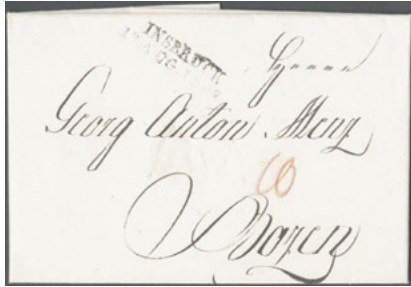 INSBRUCK
AUG
Herrn
Georg Anton Menz
10
Bozen